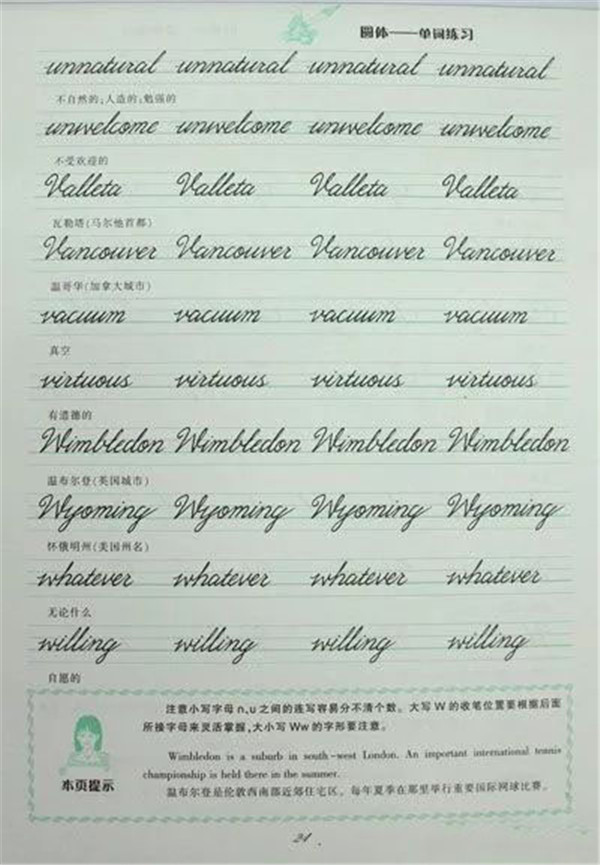 圆体——单词练习
unnatural unnatural unnatural unnatural
不自然的;人造的;勉强的
unwelcome unwelcome unwelcome unwelcome
不受欢迎的
Valleta Valleta Valleta Valleta
瓦勒塔(马尔他首都)
Vancouver Vancouver Vancouver Vancouver
温哥华(加拿大城市)
vacuum vacuum vacuum vacuum
真空
virtuous virtuous virtuous virtuous
有道德的
Wimbledon Wimbledon Wimbledon Wimbledon
温布尔登(英国城市)
Wyoming Wyoming Wyoming Wyoming
怀俄明州(美国州名)
whatever whatever whatever whatever
无论什么
willing willing willing willing
自愿的
注意小写字母 n、u 之间的连写容易分不清个数。大写 W 的收笔位置要根据后面
所接字母来灵活掌握,大小写 Ww 的字形要注意。
Wimbledon is a suburb in south-west London. An important international tennis
championship is held there in the summer.
温布尔登是伦敦西南部近郊住宅区。每年夏季在那里举行重要国际网球比赛。
本页提示
24